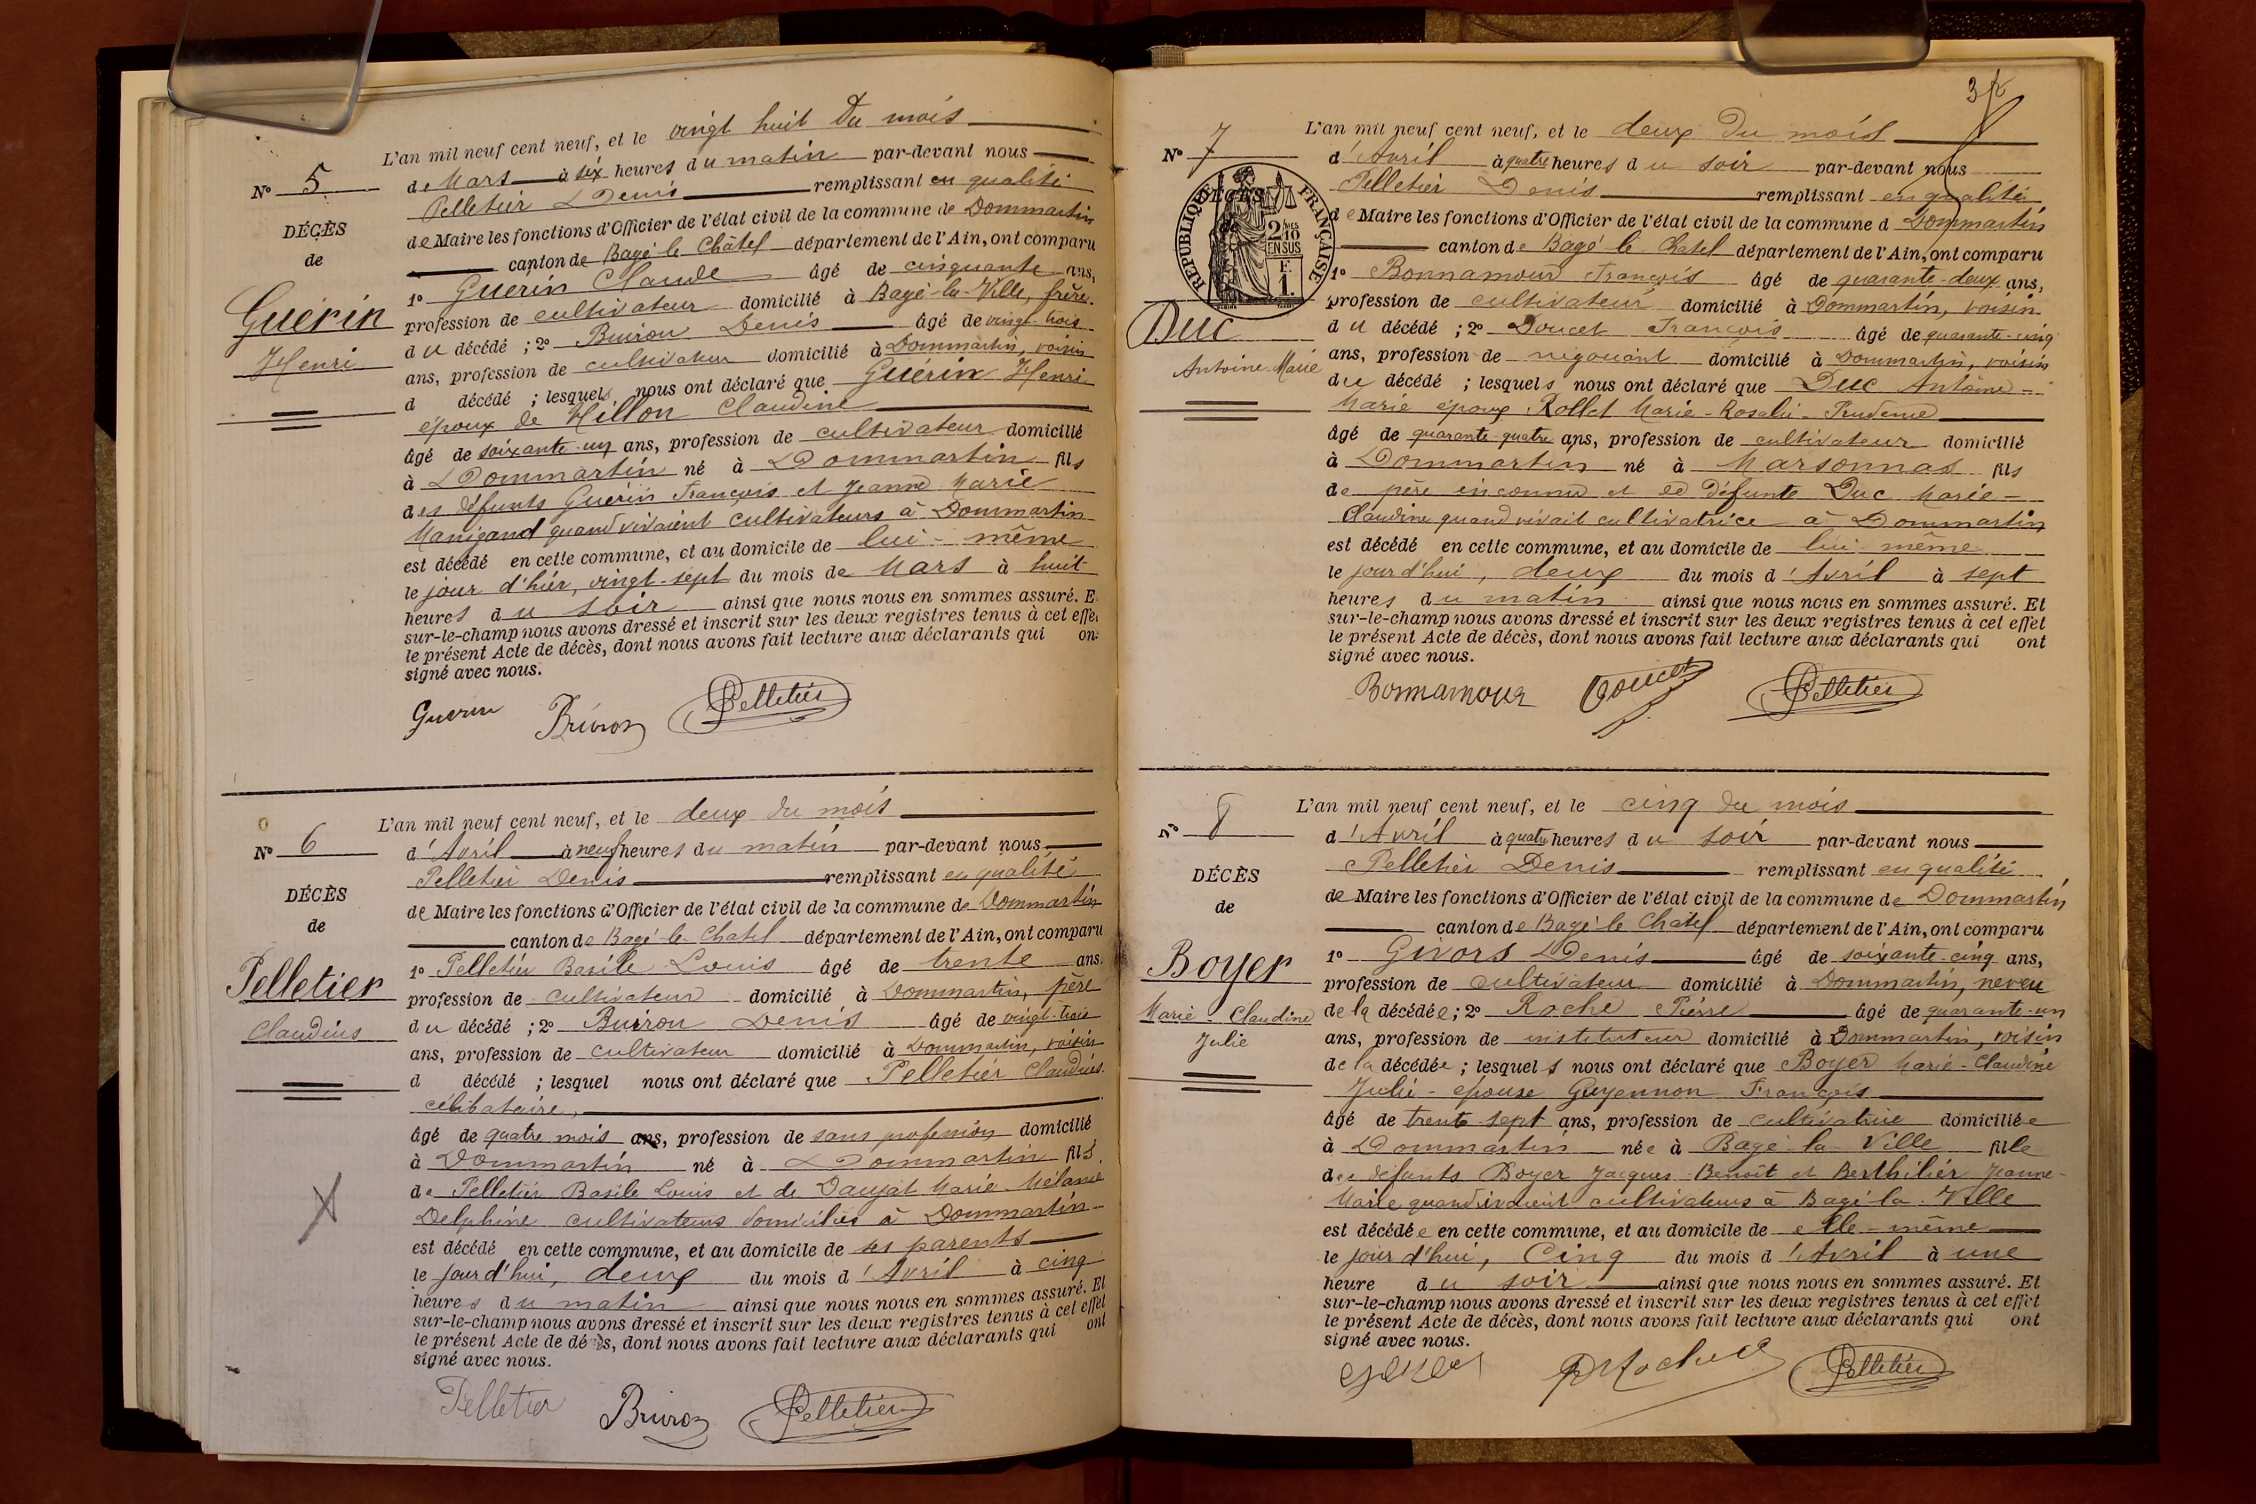 N° 5
DÉCÈS
de
Guérin
Henri
L'an mil neuf cent neuf, et le vingt huit du mois
de Mars à six heures du matin par-devant nous
Pelletier Denis remplissant en qualité
de Maire les fonctions d'Officier de l'état civil de la commune de Dommartin
canton de Bagé le Châtel département de l'Ain, ont comparu
1° Guérin Claude âgé de cinquante ans,
profession de cultivateur domicilié à Bagé-la-Ville, frère
du décédé ; 2° Buiron Denis âgé de vingt-trois
ans, profession de cultivateur domicilié à Dommartin, voisin
d décédé ; lesquels nous ont déclaré que Guérin Henri
époux de Hillon Claudine
âgé de soixante-un ans, profession de cultivateur domicilié
à Dommartin né à Dommartin fils
des défunts Guérin François et Jeanne Marie
Manigand quand vivaient cultivateurs à Dommartin
est décédé en cette commune, et au domicile de lui-même
le jour d'hier, vingt-sept du mois de Mars à huit
heures du soir ainsi que nous nous en sommes assuré. E
sur-le-champ nous avons dressé et inscrit sur les deux registres tenus à cet effe
le présent Acte de décès, dont nous avons fait lecture aux déclarants qui on
signé avec nous.
Guerin Buiron Pelletier
N° 6
DÉCÈS
de
Pelletier
Claudius
L'an mil neuf cent neuf, et le deux du mois
d'Avril à neuf heures du matin par-devant nous
Pelletier Denis remplissant en qualité
de Maire les fonctions d'Officier de l'état civil de la commune de Dommartin
canton de Bagé-le-Chatel département de l'Ain, ont comparu
1° Pelletier Basile Louis âgé de trente ans.
profession de cultivateur domicilié à Dommartin, père
du décédé ; 2° Buiron Denis âgé de vingt-trois
ans, profession de cultivateur domicilié à Dommartin, voisin
d décédé ; lesquel nous ont déclaré que Pelletier Claudius
célibataire,
âgé de quatre mois ans, profession de sans profession domicilié
à Dommartin né à Dommartin fils
de Pelletier Basile Louis et de Daujat Marie Mélanie
Delphine cultivateurs domiciliés à Dommartin
est décédé en cette commune, et au domicile de ses parents
le jour d'hui, deux du mois d'Avril à cinq
heures du matin ainsi que nous nous en sommes assuré. Et
sur-le-champ nous avons dressé et inscrit sur les deux registres tenus à cet effet
le présent Acte de dé ès, dont nous avons fait lecture aux déclarants qui ont
signé avec nous.
Pelletier Buiron Pelletier
3
N° 7
RÉPUBLIQUE FRANÇAISE
2/10 EN SUS
F. 1.
Duc
Antoine-Marie
L'an mil neuf cent neuf, et le deux du mois
d'Avril à quatre heures du soir par-devant nous
Pelletier Denis remplissant en qualité
de Maire les fonctions d'Officier de l'état civil de la commune d Dommartin
canton de Bagé le Chatel département de l'Ain, ont comparu
1° Bonnamour François âgé de quarante-deux ans,
profession de cultivateur domicilié à Dommartin, voisin
du décédé ; 2° Doucet François âgé de quarante-cinq
ans, profession de négociant domicilié à Dommartin, voisin
du décédé ; lesquels nous ont déclaré que Duc Antoine-
Marie époux Rollet Marie-Rosalie-Prudence
âgé de quarante-quatre ans, profession de cultivateur domicilié
à Dommartin né à Marsonnas fils
de père inconnu et de défunte Duc Marie-
Claudine quand vivait cultivatrice à Dommartin
est décédé en cette commune, et au domicile de lui-même
le jour d'hui, deux du mois d'Avril à sept
heures du matin ainsi que nous nous en sommes assuré. Et
sur-le-champ nous avons dressé et inscrit sur les deux registres tenus à cet effet
le présent Acte de décès, dont nous avons fait lecture aux déclarants qui ont
signé avec nous.
Bonnamour Doucet Pelletier
N° 8
DÉCÈS
de
Boyer
Marie-Claudine
Julie
L'an mil neuf cent neuf, et le cinq du mois
d'Avril à quatre heures du soir par-devant nous
Pelletier Denis remplissant en qualité
de Maire les fonctions d'Officier de l'état civil de la commune de Dommartin
canton de Bagé-le-Chatel département de l'Ain, ont comparu
1° Givors Denis âgé de soixante-cinq ans,
profession de cultivateur domicilié à Dommartin, neveu
de la décédée ; 2° Roche Pierre âgé de quarante-un
ans, profession de instituteur domicilié à Dommartin, voisin
de la décédée ; lesquels nous ont déclaré que Boyer Marie-Claudine
Julie - épouse Guyennon François
âgé de trente sept ans, profession de cultivatrice domiciliée
à Dommartin née à Bagé-la-Ville fille
des défunts Boyer Jacques-Benoît et Berthilier Jeanne-
Marie quand vivaient cultivateurs à Bagé-la-Ville
est décédée en cette commune, et au domicile de elle-même
le jour d'hui, Cinq du mois d'Avril à une
heure du soir ainsi que nous nous en sommes assuré. Et
sur-le-champ nous avons dressé et inscrit sur les deux registres tenus à cet effet
le présent Acte de décès, dont nous avons fait lecture aux déclarants qui ont
signé avec nous.
PRoche Pelletier